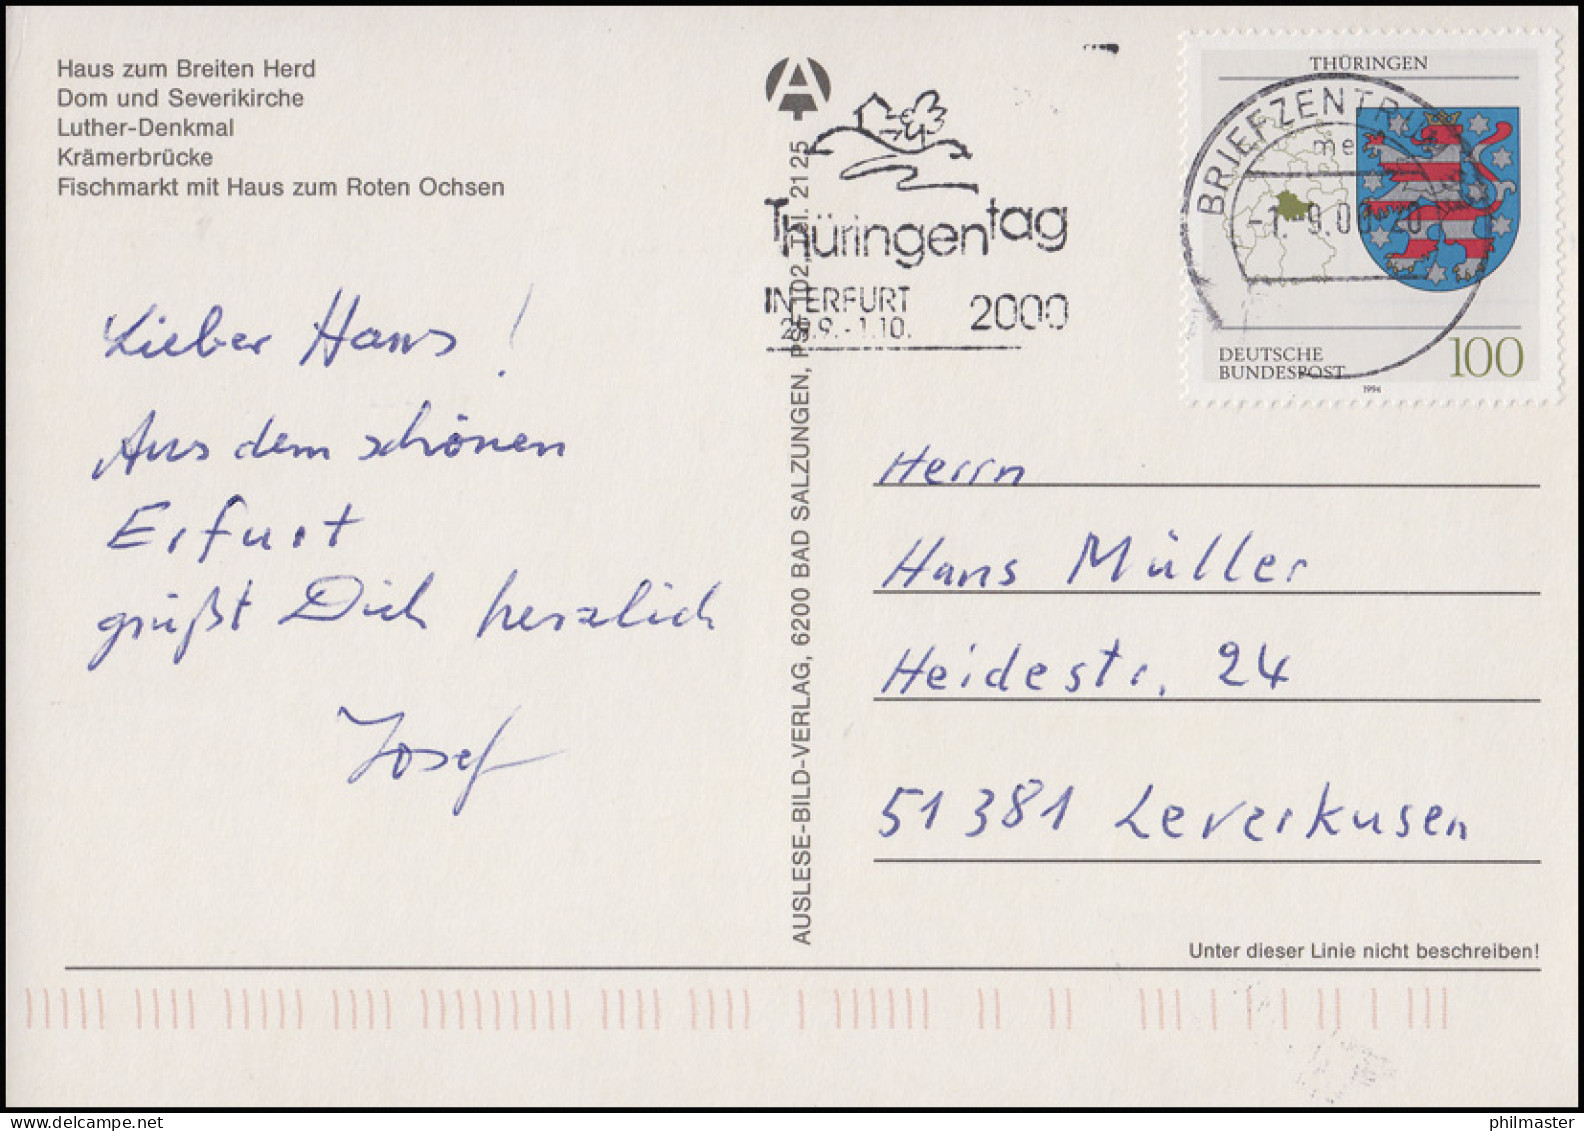 Haus zum Breiten Herd
Dom und Severikirche
Luther-Denkmal
Krämerbrücke
Fischmarkt mit Haus zum Roten Ochsen
Lieber Hans!
Aus dem schönen
Erfurt
grüßt Dich herzlich
Josef
AUSLESE-BILD-VERLAG, 6200 BAD SALZUNGEN, PSF 102, Tel. 2125
Thüringentag
IN ERFURT 2000
29.9.-1.10.
BRIEFZENTRUM
-1.-9.00-20
THÜRINGEN
DEUTSCHE
BUNDESPOST 100
1994
Herrn
Hans Müller
Heidestr. 24
51381 Leverkusen
Unter dieser Linie nicht beschreiben!
philmaster